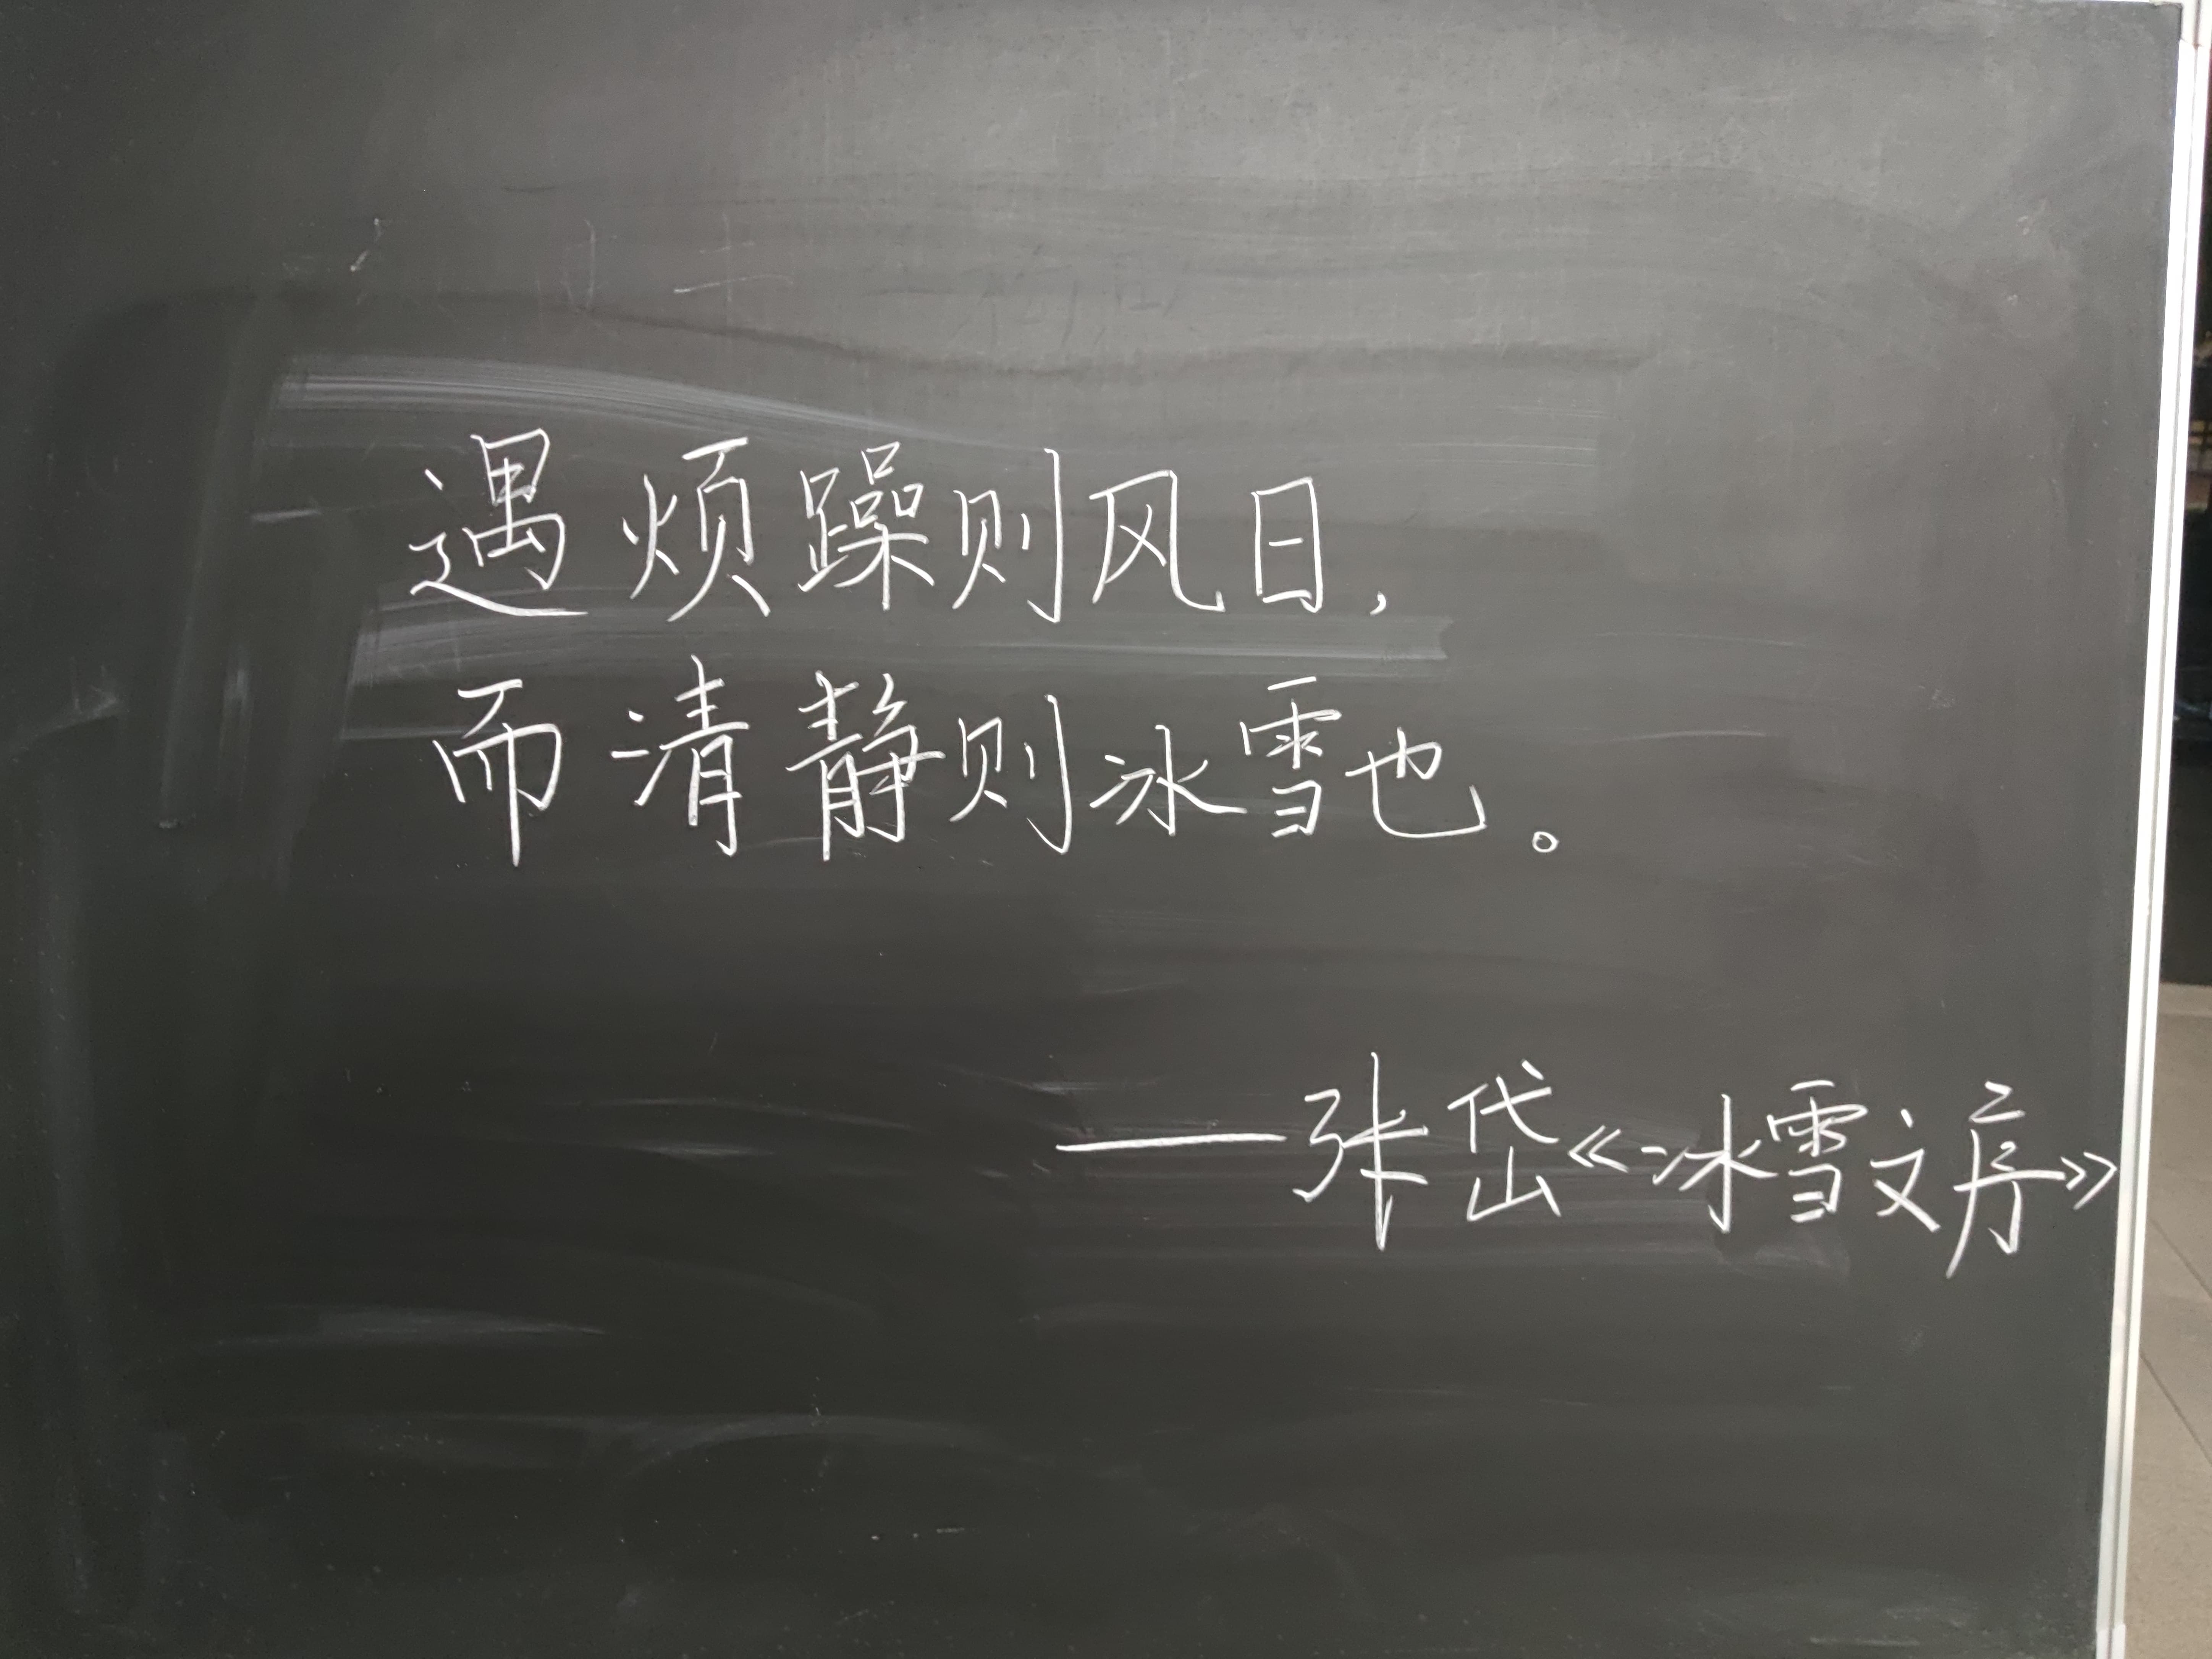 遇烦躁则风日，
而清静则冰雪也。
——张岱《冰雪文序》